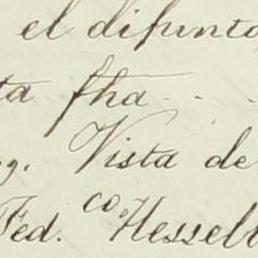 el difunto
ta fha - -
g. Vista de
Fed.co Hesselb